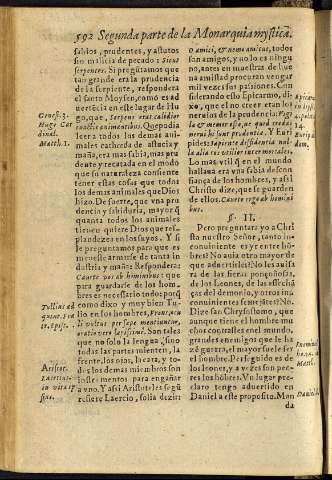 592 Segunda parte de la Monarquia mystica.
sabios, prudentes, y astutos
sin malicia de pecado: Sicut
serpentes. Si pregūtamos que
tan grande era la prudencia
de la serpiente, respondera
el santo Moysen, como es ad
uertēcia en este lugar de Hu
go, que, Serpens erat callidior
cunctis animantibus. Que podia
leera todos los demas ani-
males cathedra de astucia y
maña, era mas sabia, mas pru
dente y recatada en el modo
que su naturaleza consiente
tener estas cosas que todos
los demas animales que Dios
hizo. De suerte, que vna pru
dencia y sabiduria, mayor q̄
quanta todos los animales
tienen quiere Dios que res-
plandezea en los suyos. Y si
le preguntamos para que es
menester armarse de tanta in
dustria y maña: Respondera:
Cauete vos ab hominibus: que
para guardarse de los hom-
bres es necesario todo: porq̄
como dixo y muy bien Tu-
lio en los hombres, Frons, ocu
li vultus per sæpe mentiuntur,
oratio vero sæpissime. Son tales
que no solo la lengua, sino
todas las partes mienten, la
frente, los ojos, la cara, y to-
dos los demas miembros son
instrumentos para engañar
a vno. Y assi Aristoteles segū
refiere Laercio, solia dezir:
Genes. 3.
Hugo Car
dinal.
Matth. 1.
Tullius ad
Aristot.
Laertius
in vita ip
sius.
o amici, & nemo amicus, todos
son amigos, y no lo es ningu
no, antes en muestras de bue
na amistad procuran vengar
mil vezes sus passiones. Con
siderando esto Epicarmo, di-
xo, que el no creer eran los
neruios de la prudencia: Fugi
la & memorare, ac quod credas
nerui hi sunt prudentiæ. Y Euri
pides: Sapiente diffidentia nul-
la alia res vtilior inter mortales.
Lo mas vtil q̄ en el mundo
hallaua era vna sabia descon
fiança de los hombres, y assi
Christo dize, que se guarden
de ellos. Cauete ergo ab homini
bus.
§. II.
Pero preguntara yo a Chri
sto nuestro Señor, tanto in-
conuiniente es ya entre hō-
bres? No auia otro mayor de
que aduertirles? No les auisa
ra de las fieras ponçoñosas,
de los Leones, de las assechā
ças del demonio, y otros in-
conuinientes semejātes? No.
Dize san Chrysostomo, que
aunque tiene el hombre mu
chos contrastes en el mundo,
grandes enemigos que le ha
zē guerra, el mayor suele ser
el hombre. Perseguido es de
los leones, y a vezes son peo-
res los hōbres. Vn lugar pre-
claro tengo aduertido en
Daniel a este proposito. Man
da
Matth.
Daniel. 6